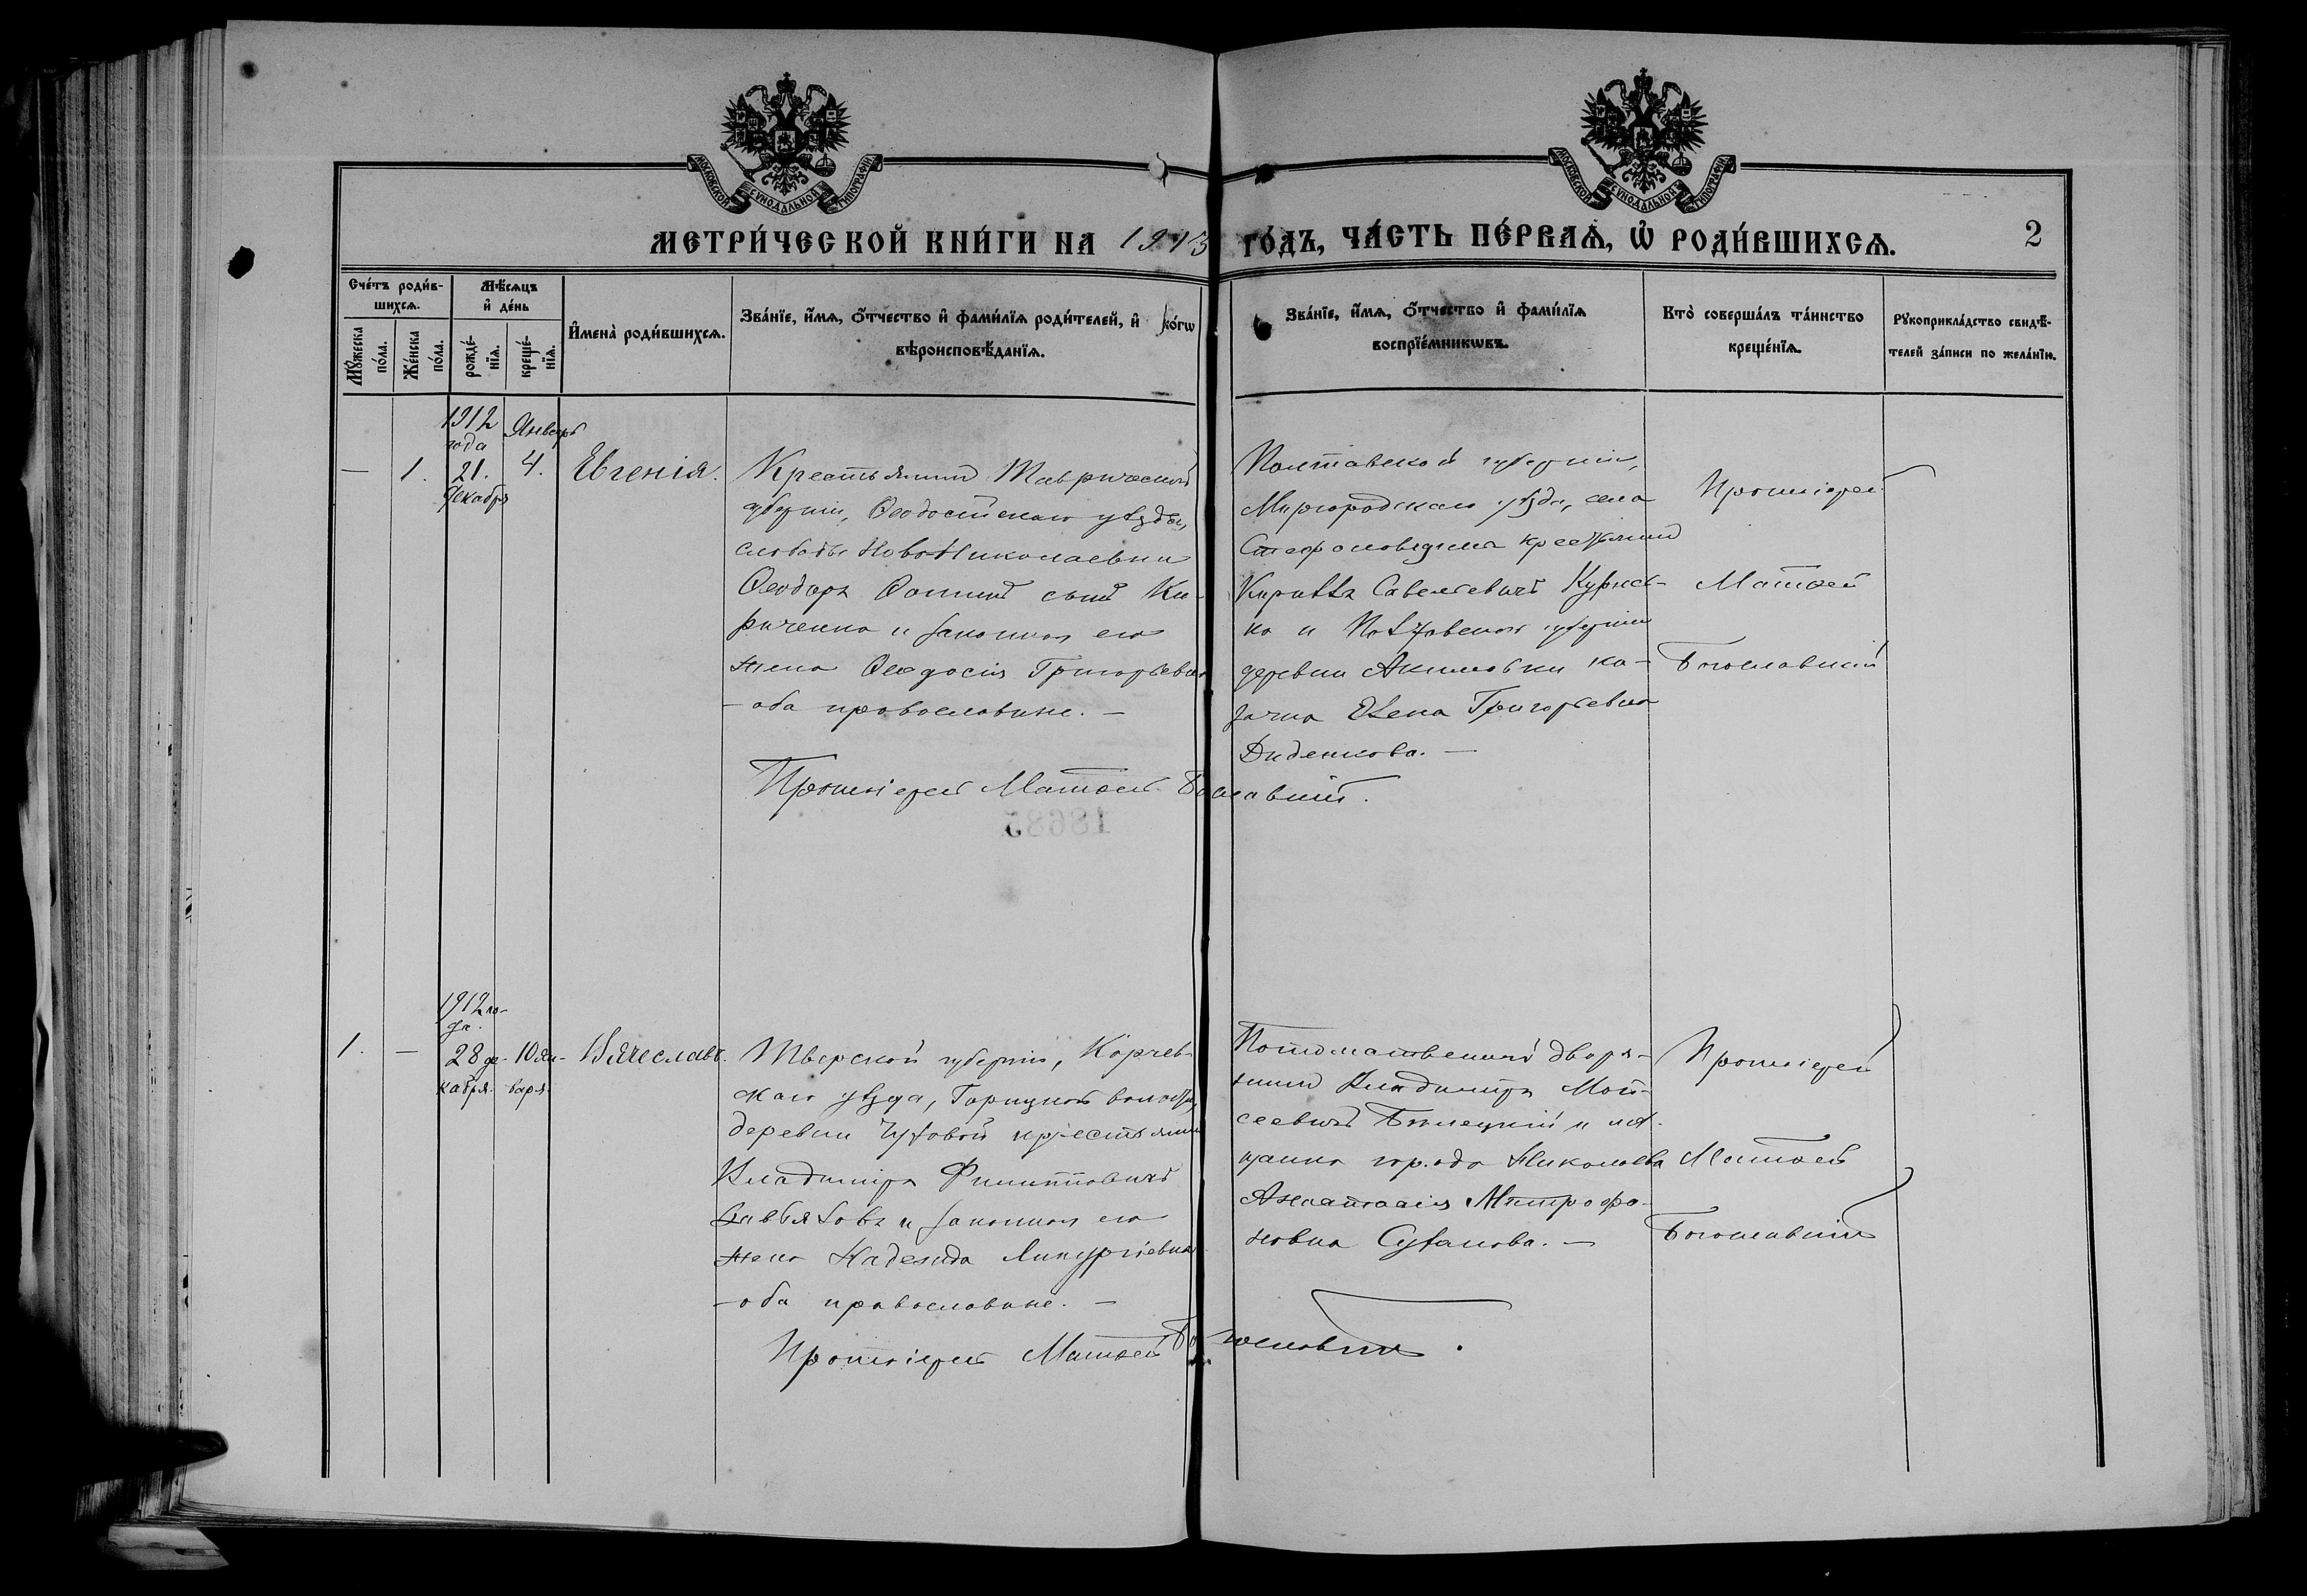 МОСКОВСКОЙ СѴНОДАЛЬНОЙ ТИПОГРАФІИ
МОСКОВСКОЙ СѴНОДАЛЬНОЙ ТИПОГРАФІИ
МЕТРИ́ЧЕСКОЙ КНИ́ГИ НА 1913 ГО́ДЪ, ЧА́СТЬ ПЕ́РВАѦ, Ѡ҆ РОДИ́ВШИХСѦ.
2
Сче́тъ роди́в-
шихсѧ.
Мꙋ́жеска по́ла.
Же́нска по́ла.
Мѣ́сѧцъ
и҆ де́нь
рожде́-
нїѧ.
креще́-
нїѧ.
И҆мена̀ роди́вшихсѧ.
Зва́нїе, и҆́мѧ, ѻ҆́тчество и҆ фами́лїѧ роди́телей, и҆ ко́гѡ
вѣроисповѣ́данїѧ.
Зва́нїе, и҆́мѧ, ѻ҆́тчество и҆ фами́лїѧ
воспрїе́мникѡвъ.
Кто̀ соверша́лъ та́инство
креще́нїѧ.
Рꙋкоприкла́дство свидѣ́-
телей за́писи по жела́нїю.
—
1.
1912
года
21.
декабря
Январь
4.
Евгенія.
Крестьянинъ Таврической
губерніи, Ѳеодосійскаго уѣзда,
слободы НовоНиколаевки
Ѳеодоръ Ѳоминъ сынъ Ки-
риченко и законная его
жена Ѳеодосія Григорьевна
- оба православные. -
Полтавской губерніи,
Миргородскаго уѣзда, села
крестьянинъ
Кириллъ Савельевичъ
ко и Полтавской губерніи
деревни Акимовки ка-
зачка Елена Григорьевна
Диденкова. —
Протоіерей
Матѳей
Богословскій
Протоіерей Матѳей Богословскій.
18685
1.
—
1912 го-
да.
28 де-
кабря.
10 ян-
варя.
Вячеславъ.
Тверской губерніи, Корчев-
скаго уѣзда, Горицкой волости,
деревни крестьянинъ
Владиміръ Филипповичъ
и законная его
жена Надежда Ликургіевна
- оба православные. -
Потомственный дворя-
нинъ Владиміръ Мои-
сеевичъ и мѣ-
щанка города Николаева
Анастасія Митрофа-
новна —
Протоіерей
Матѳей
Богословскій
Протоіерей Матѳей Богословскій.